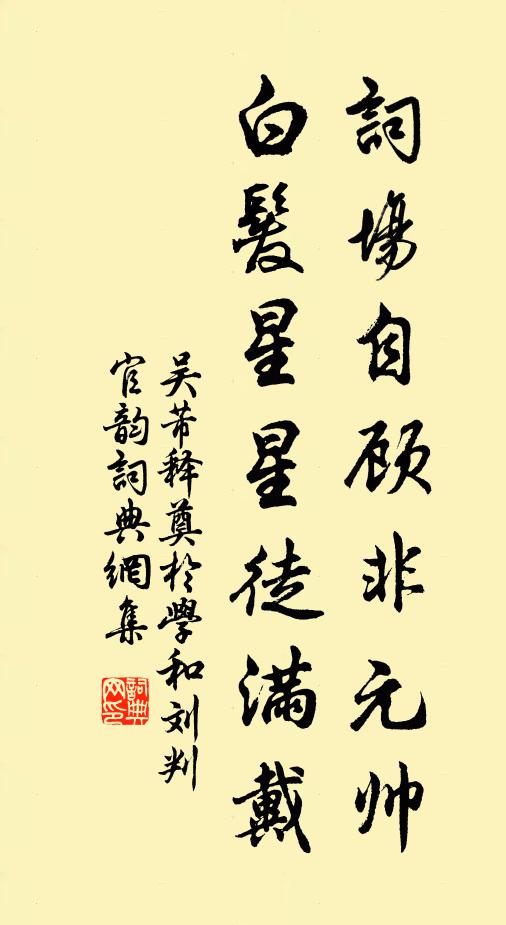 詞場自顾非元帅
白髮星星徒满戴
吴芾释奠於學和刘判
官韵詞典網集
詞典網印